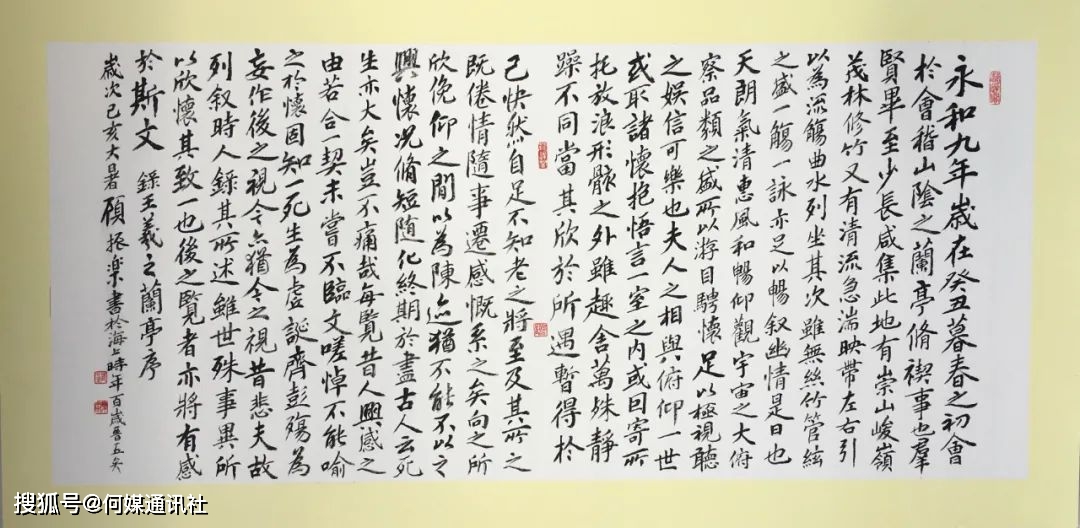 永和九年歲在癸丑暮春之初會
於會稽山陰之蘭亭脩禊事也羣
賢畢至少長咸集此地有崇山峻嶺
茂林修竹又有清流急湍映帶左右引
以為流觴曲水列坐其次雖無絲竹管絃
之盛一觴一詠亦足以暢叙幽情是日也
天朗氣清惠風和暢仰觀宇宙之大俯
察品類之盛所以游目騁懷足以極視聽
之娛信可樂也夫人之相與俯仰一世
或取諸懷抱悟言一室之內或因寄所
托放浪形骸之外雖趣舍萬殊靜
躁不同當其欣於所遇暫得於
己快然自足不知老之將至及其所之
既倦情隨事遷感慨系之矣向之所
欣俛仰之間以為陳迹猶不能不以之
興懷況脩短隨化終期於盡古人云死
生亦大矣豈不痛哉每覽昔人興感之
由若合一契未嘗不臨文嗟悼不能喻
之於懷固知一死生為虛誕齊彭殤為
妄作後之視今亦猶今之視昔悲夫故
列叙時人錄其所述雖世殊事異所
以欣懷其致一也後之覽者亦將有感
於斯文 錄王羲之蘭亭序
歲次己亥大暑顧振樂書於海上時年百歲晉五矣
搜狐号@何媒通讯社